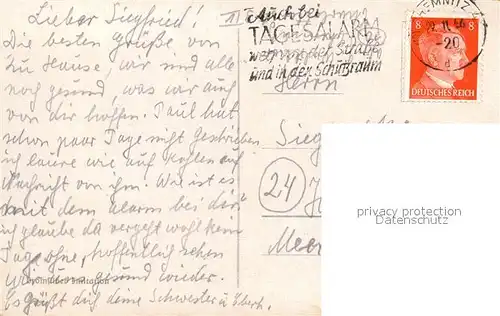 Lieber Siegfried!
Die besten Grüße, von
zu Hause, wir sind alle
noch gesund, was wir auch
von dir hoffen. Paul hat
schon paar Tage nicht geschrieben
ich laure wie auf Kohlen auf
Nachricht von ihm. Wie ist es
mit dem Alarm bei dir
ich glaube da vergeht wohl kein
Tag ohne, hoffentlich sehen
wir uns gesund wieder.
Es grüßt dich deine Schwester u.
Auch bei
TAGESALARM
und in den Schutzraum
CHEMNITZ
-20
d
8 8
DEUTSCHES REICH
Herrn
24
privacy protection
Datenschutz